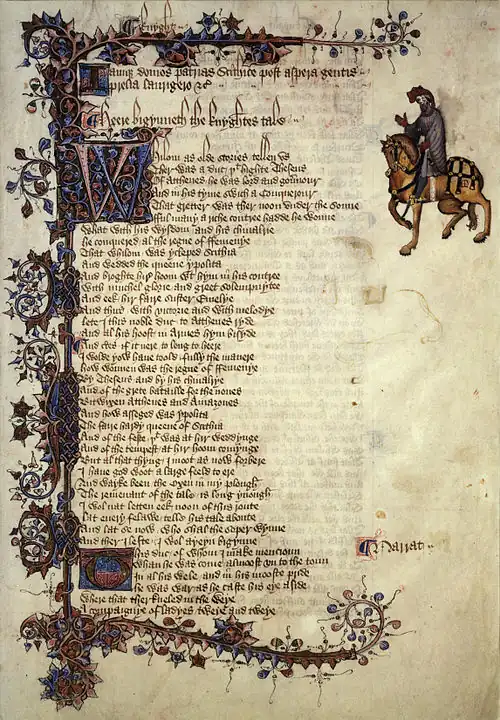 Knyght
Iamq; domos patrias Scithice post aspera gentis
prelia laurigero &c
Heere bigynneth the knyghtes tale
Whilom as olde stories tellen vs
Ther was a duc þt highte Theseus
Of Atthenes he was lord and gouernour
And in his tyme swich a Conquerour
That gretter was ther noon vnder the sonne
fful many a riche contree hadde he wonne
What with his wysdom and his chiualrie
he conquered al the regne of ffemenye
That whilom was ycleped Scithia
And wedded the queene ypolita
And broghte hir hoom wt hym in his contree
With muchel glorie and greet solempnytee
And eek hir faire suster Emelye
And thus with victorie and with melodye
lete I this noble duc to Atthenes ryde
And al his hoost in Armes hym bisyde
And certes if it nere to long to heere
I wolde yow haue toold fully the manere
how wonnen was the regne of ffemenye
By Theseus and by his chiualrye
And of the grete bataille for the nones
Bitwixen Atthenes and Amazones
And how asseged was ypolita
The faire hardy queene of Scithia
And of the feste þt was at hir weddynge
And of the tempest at hir hoom comynge
But al that thyng I moot as now forbere
I haue god woot a large feeld to ere
And wayke been the Oxen in my plough
The remenant of the tale is long ynough
I wol nat letten eek noon of this route
lat euery felawe telle his tale aboute
And lat se now who shal the soper wynne
And ther I lefte I wol ayeyn bigynne
Narrat
This duc of whom I make mencioun
Whan he was come almoost vn to the toun
In al his wele and in his mooste pride
he was war as he caste his eye aside
Where that ther kneled in the weye
A compaignye of ladyes tweye and tweye